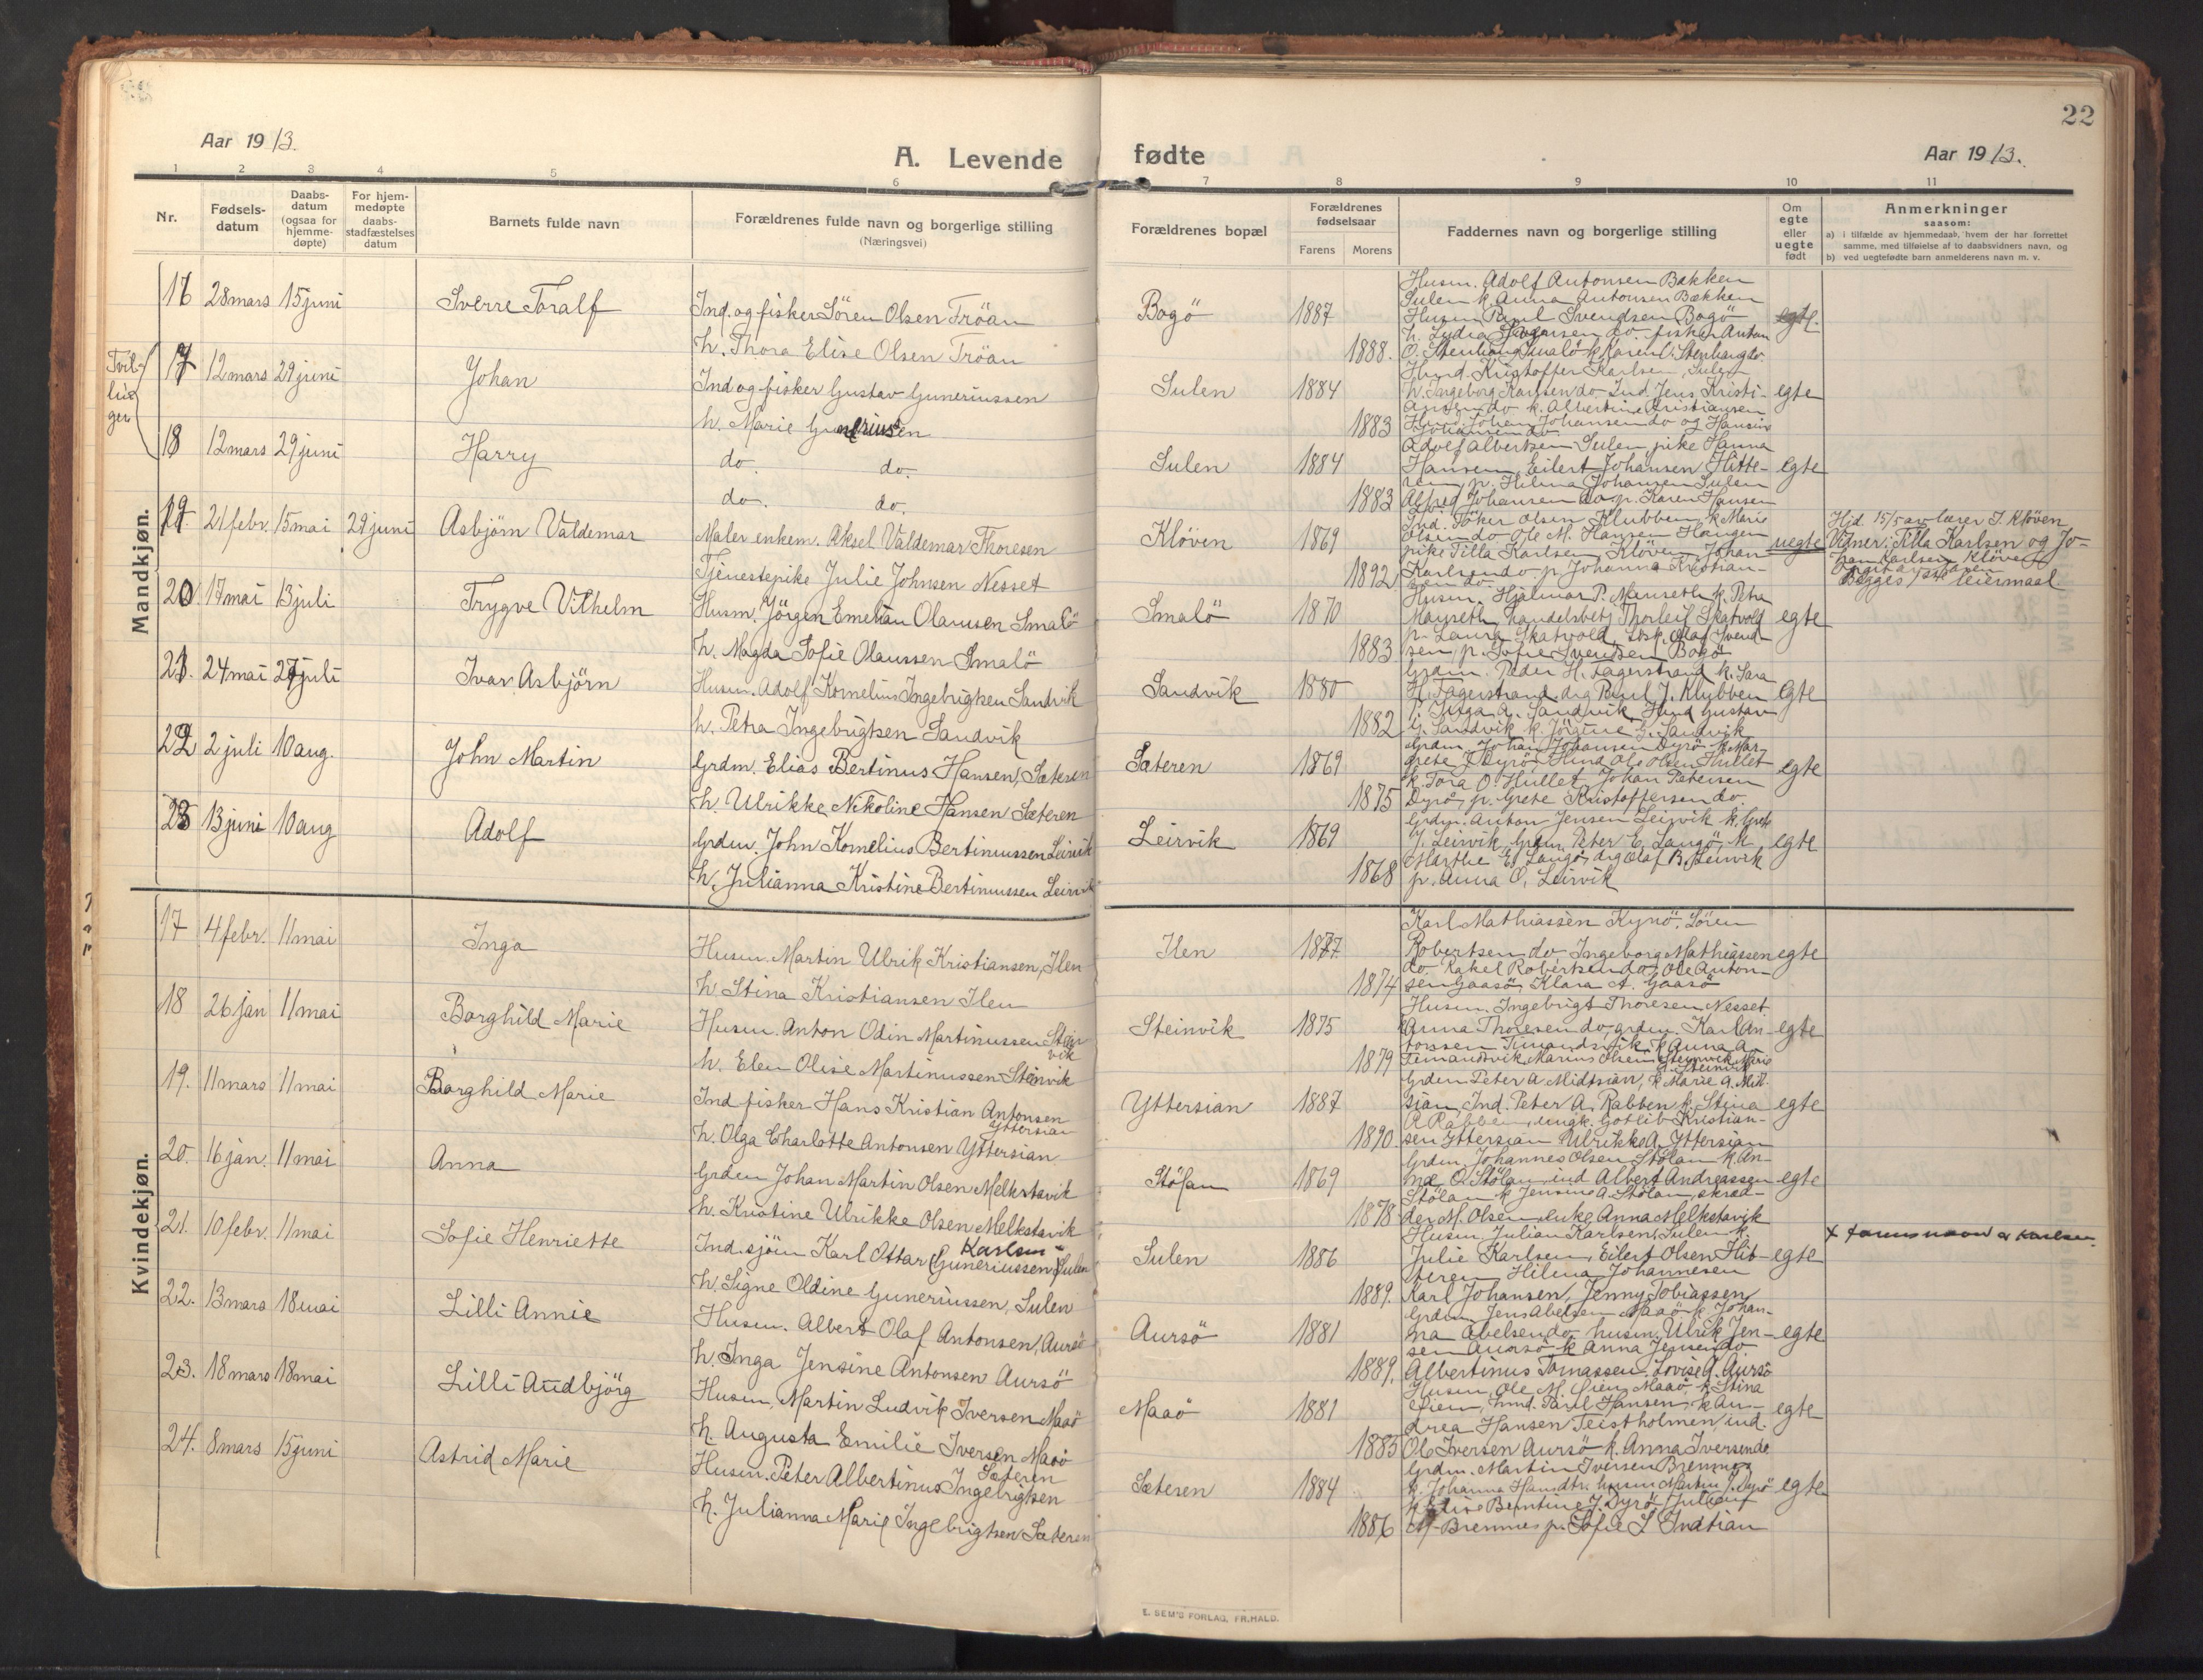 22
Aar 1913.
A. Levende fødte
Aar 1913.
1 2 3 4 5 6 7 8 9 10 11
Nr.
Fødsels-
datum
Daabs-
datum
(ogsaa for
hjemme-
døpte)
For hjem-
medøpte
daabs-
stadfæstelses
datum
Barnets fulde navn
Forældrenes fulde navn og borgerlige stilling
(Næringsvei)
Forældrenes bopæl
Forældrenes
fødselsaar
Farens Morens
Faddernes navn og borgerlige stilling
Om
egte
eller
uegte
født
Anmerkninger
saasom:
a) i tilfælde av hjemmedaab, hvem der har forrettet
samme, med tilføielse af to daabsvidners navn, og
b) ved uegtefødte barn anmelderens navn m. v.
Mandkjøn.
16 28 mars 15 juni Sverre Toralf
Ind. og fisker Sören Olsen Tröan
h. Thora Elise Olsen Tröan
Bogö 1887 1888. egte.
Husm. Adolf Antonsen Bakken
Sulen k. Anna Antonsen Bakken
Husm. Paul Svendsen Bogö
Tvil-
lin
ger
17 12 mars 29 juni Johan
Ind og fisker Gustav Guneriussen
h. Marie Guneriusen
Sulen 1884 1883 egte
Kristoffer Karlsen, Sulen
h. Ingeborg Karlsen do Ind. Jens Kristi-
ansen do k. Albertine Kristiansen
Johan Johansen do og Hansine
Johansen do
18 12 mars 29 juni Harry
do. do.
do. do.
Sulen 1884 1883 egte
Adolf Albertsen Sulen, pike Hanna
Hansen, Eilert Johansen Hitte-
ren, p. Hilma Johansen Sulen
Alfred Johansen do. p. Karen Hansen
19. 21 febr. 15 mai 29 juni Asbjörn Valdemar
Maler enkem. Aksel Valdemar Thoresen
Tjenestepike Julie Johnsen Nesset
Klöven 1869 1892 uegte
Olsen Klubben k Marie
Olsen do Ole M. Hansen Haugen
pike Tilla Karlsen, Klöven, Johan
Karlsen do. p. Johanna Kristian-
sen do.
Hjd. 15/5 av lærer J. Klöven
Vidner: Tilla Karlsen og Jo-
han Karlsen Klöven
Begges leiermaal.
20. 17 mai 13 juli Trygve Vilhelm
Husm. Jörgen Emelian Olaussen Smalö
h. Magda Sofie Olaussen Smalö
Smalö 1870 1883 egte
Husm. Hjalmar P. Mauseth k. Petra
Mauseth, handelsbetj Thorleif Skatvold
p. Laura Skatvold, Olaf Svend-
sen, p. Sofie Svendsen Bogö
21. 24 mai 27 juli Ivar Asbjörn
Husm. Adolf Kornelius Ingebrigtsen Sandvik
h. Petra Ingebrigtsen Sandvik
Sandvik 1880 1882 egte
Grdm. Peder H. Fagerstrand k. Sara
H. Fagerstrand, drg Paul J. Klubben
p. Inga A. Sandvik, Gustav
G. Sandvik k. Jörgine G. Sandvik
22 2 juli 10 aug. John Martin
Grdm. Elias Bertinus Hansen, Sæteren
h. Ulrikke Nikoline Hansen Sæteren
Sæteren 1869 1875 egte
Grdm. Johan Johansen Dyrö k. Mar-
grete J. Dyrö, Ole Olsen Hullet
k. Tora O. Hullet, Johan Petersen
Dyrö, p. Grete Kristoffersen do.
23 13 juni 10 aug Adolf
Grdm. John Kornelius Bertinussen Leirvik
h. Julianna Kristine Bertinussen Leirvik
Leirvik 1869 1868 egte
Grdm. Anton Jensen Leirvik k. Grete
J. Leirvik, Grdm. Peter E. Langö, k
Marthe E. Langö, drg Olaf B. Leirvik
p. Anna O. Leirvik
Kvindekjøn.
17 4 febr. 11 mai Inga
Husm. Martin Ulrik Kristiansen, Ilen
h Stina Kristiansen Ilen
Ilen 1877 1874 egte
Karl Mathiassen Kyrrö. Sören
Robertsen do, Ingeborg Mathiassen
do. Rakel Robertsen do, Ole Anton-
sen Gaasö, Klara A. Gaasö
18 26 jan 11 mai Borghild Marie
Husm. Anton Odin Martinussen Stein
vik
h. Elen Olise Martinussen Steinvik
Steinvik 1875 1879 egte
Husm. Ingebrigt Thoresen Nesset.
k Anna Thoresen do, grdm. Karl An-
tonsen Timandsvik, k Anna A.
Timandsvik, Marius Olsen Steinvik, Marie
O. Steinvik
19. 11 mars 11 mai Borghild Marie
Ind fisker Hans Kristian Antonsen
Yttersian
h. Olga Charlotte Antonsen Yttersian
Yttersian 1887 1890. egte
Grdm Peter A Midtsian, k Marie A. Mid-
sian, Ind. Peter A. Rabben k. Stina
A Rabben, ungk. Gotlib Kristian-
sen Yttersian Ulrikke A. Yttersian
20. 16 jan. 11 mai Anna
Grdm Johan Martin Olsen Melkstavik
h. Kristine Ulrikke Olsen Melkstavik
Stölan 1869 1878 egte
Grdm. Johannes Olsen Stölan k An-
na O. Stölan, ind Albert Andreassen
Stölan k Jensine A. Stölan, skræd-
der M. Olsen, enke Anna Melkstavik
21. 10 febr. 11 mai Sofie Henriette
Karlsen
Ind. sjöm Karl Ottar (Guneriussen) Sulen
h. Signe Oldine Guneriussen, Sulen
Sulen 1886 1889. egte
Husm. Julian Karlsen, Sulen k.
Julie Karlsen, Eilert Olsen Hit-
teren, Hilma Johannesen
Karl Johansen, Jenny Tobiassen
x farens navn er Karlsen.
22. 13 mars 18 mai Lilli Annie
Husm. Albert Olaf Antonsen, Aursö
h. Inga Jensine Antonsen Aursö
Aursö 1881 1889. egte
Grdm. Jens Abelsen Maaö k. Johan-
na Abelsen do, husm. Ulrik Jen-
sen Aursö k Anna Jensen do
Albertinus Tomassen. Lovise A. Aursö
23. 18 mars 18 mai Lilli Audbjörg
Husm, Martin Ludvik Iversen Maaö
h. Augusta Emilie Iversen Maaö
Maaö 1881 1885 egte
Husm. Ole M. Öien Maaö, k Stina
Öien, Paul Hansen, k An-
drea Hansen Teistholmen, ind.
Ole Iversen Aursö k. Anna Iversen do
24. 8 mars 15 juni Astrid Marie
Sæteren
Husm. Peter Albertinus Ingebrigtsen
h. Julianna Marie Ingebrigtsen Sæteren
Sæteren 1884 1886 egte
Grdm. Martin Iversen Bremnes
k. Johanna husm Martin J. Dyrö
k Bentine J. Dyrö, Julian
M. Bremnes p. Sofie L Indtian
E. SEM'S FORLAG, FR.HALD.